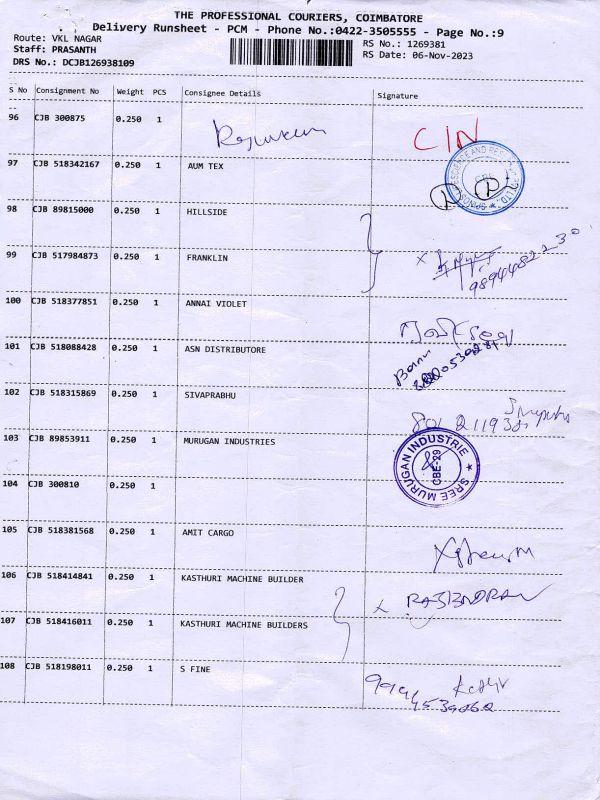 THE PROFESSIONAL COURIERS, COIMBATORE
Delivery Runsheet - PCM - Phone No.:0422-3505555 - Page No.:9
Route: VKL NAGAR
RS No.: 1269381
Staff: PRASANTH
RS Date: 06-Nov-2023
DRS No.: DCJB126938109
S No Consignment No Weight PCS Consignee Details Signature
96 CJB 300875 0.250 1 C/N
97 CJB 518342167 0.250 1 AUM TEX
98 CJB 89815000 0.250 1 HILLSIDE
99 CJB 517984873 0.250 1 FRANKLIN
9894482230
100 CJB 518377851 0.250 1 ANNAI VIOLET
101 CJB 518088428 0.250 1 ASN DISTRIBUTORE
102 CJB 518315869 0.250 1 SIVAPRABHU
103 CJB 89853911 0.250 1 MURUGAN INDUSTRIES
SREE MURUGAN INDUSTRIE
CBE-29
104 CJB 300810 0.250 1
105 CJB 518381568 0.250 1 AMIT CARGO
106 CJB 518414841 0.250 1 KASTHURI MACHINE BUILDER
x RAJENDRAN
107 CJB 518416011 0.250 1 KASTHURI MACHINE BUILDERS
108 CJB 518198011 0.250 1 S FINE